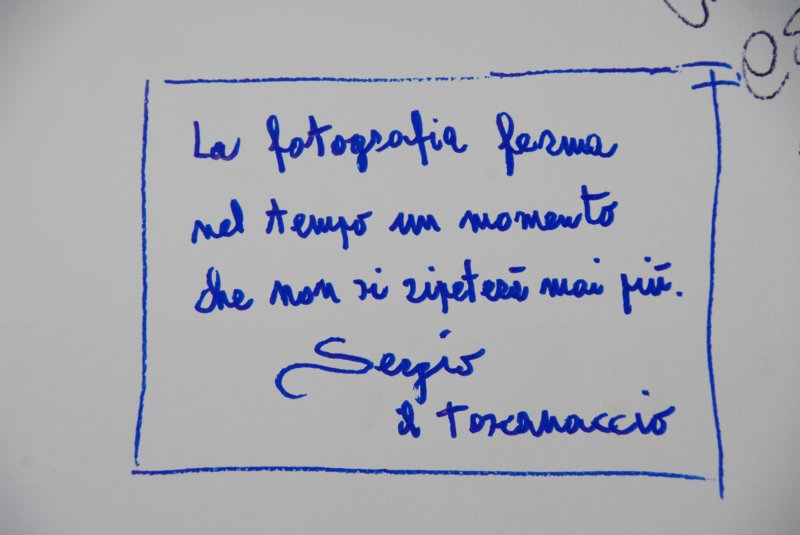 La fotografia ferma
nel tempo un momento
che non si ripeterà mai più.
Sergio
il Toscanaccio